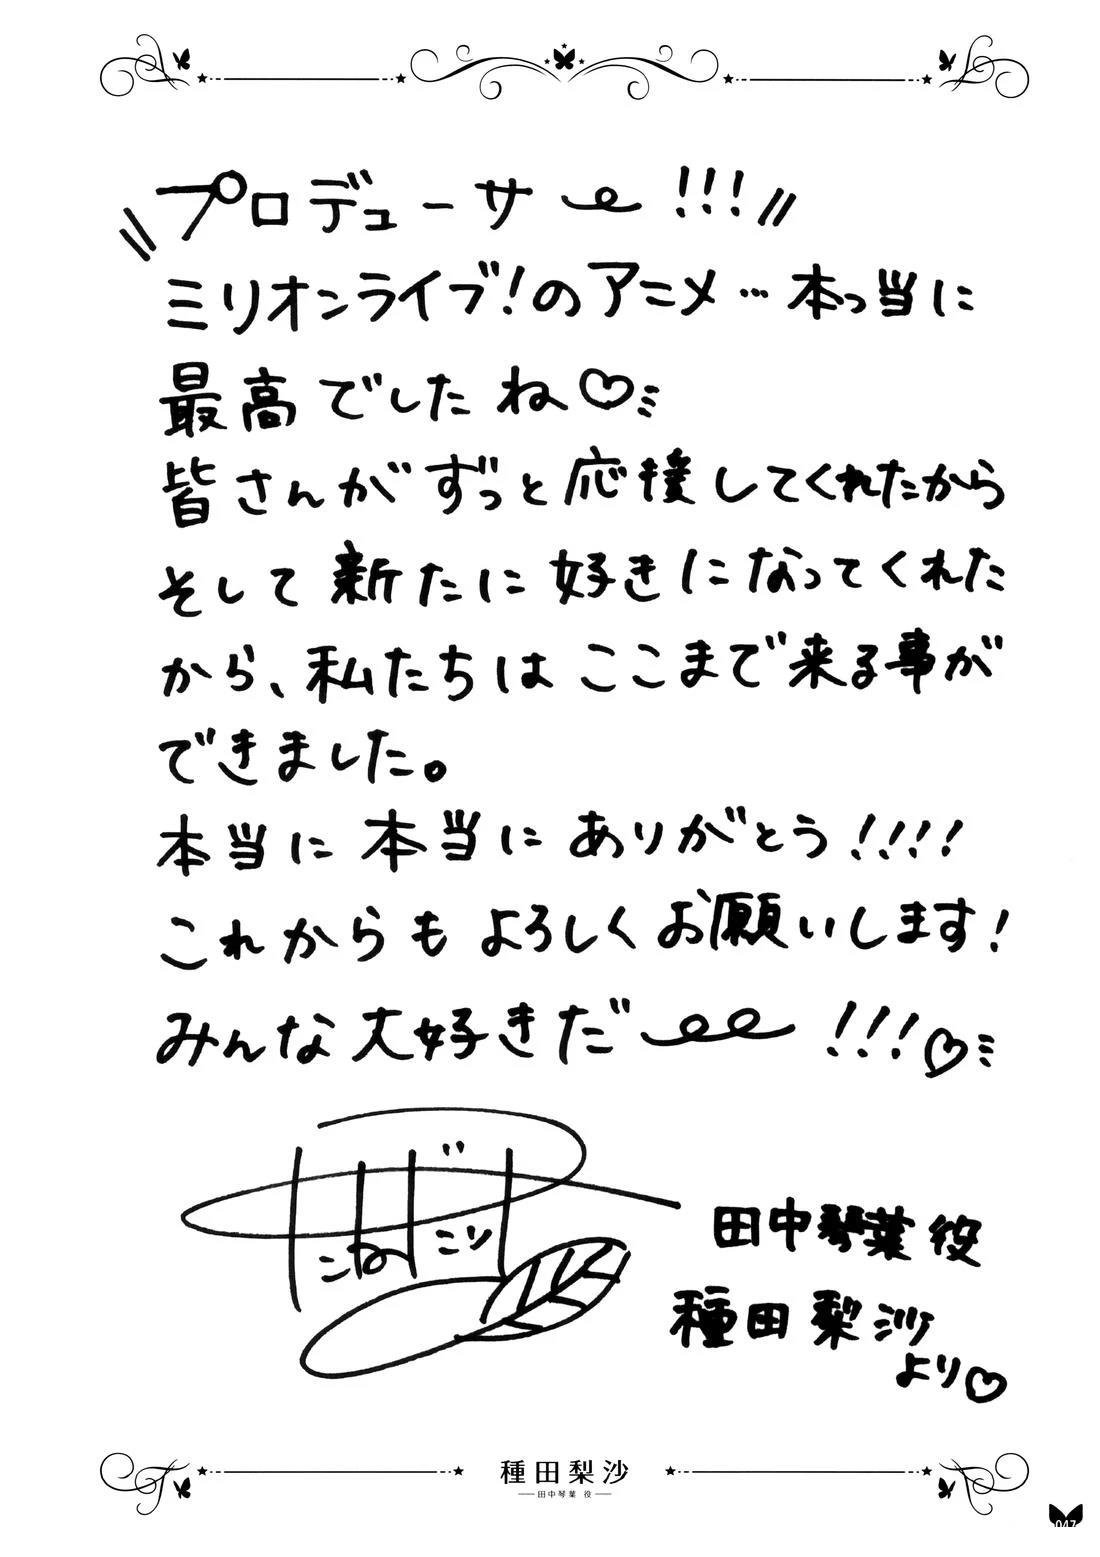 プロデューサ〜!!!
ミリオンライブ!のアニメ…本っ当に
最高でしたね♡
皆さんがずっと応援してくれたから
そして新たに好きになってくれた
から、私たちはここまで来る事が
できました。
本当に本当にありがとう!!!!
これからもよろしくお願いします!
みんな大好きだ〜!!!♡
田中琴葉役
種田梨沙
より♡
種田梨沙
田中琴葉 役
047